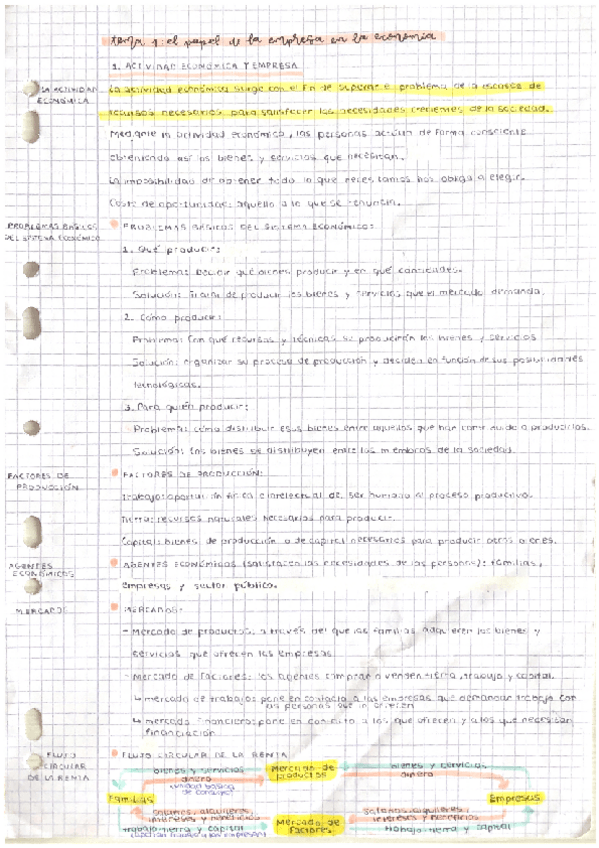 tema 1: el papel de la empresa en la economía
1. ACTIVIDAD ECONÓMICA Y EMPRESA
LA ACTIVIDAD ECONÓMICA
La actividad económica surge con el fin de superar el problema de la escasez de
recursos necesarios para satisfacer las necesidades crecientes de la sociedad.
Mediante la actividad económica, las personas actúan de forma consciente
obteniendo así los bienes y servicios que necesitan.
La imposibilidad de obtener todo lo que necesitamos nos obliga a elegir.
Coste de oportunidad: aquello a lo que se renuncia.
PROBLEMAS BÁSICOS DEL SISTEMA ECONÓMICO
PROBLEMAS BÁSICOS DEL SISTEMA ECONÓMICO:
1. Qué producir:
Problema: Decidir qué bienes producir y en qué cantidades.
Solución: Trata de producir los bienes y servicios que el mercado demanda.
2. Cómo producir:
Problema: Con qué recursos y técnicas se producirán los bienes y servicios
Solución: organizar su proceso de producción y deciden en función de sus posibilidades
tecnológicas.
3. Para quién producir:
Problema: cómo distribuir esos bienes entre aquellos que han contribuido a producirlos.
Solución: Los bienes se distribuyen entre los miembros de la sociedad.
FACTORES DE PRODUCCIÓN
FACTORES DE PRODUCCIÓN:
Trabajo: aportación física o intelectual del ser humano al proceso productivo.
Tierra: recursos naturales necesarios para producir.
Capital: bienes de producción o de capital necesarios para producir otros bienes.
AGENTES ECONÓMICOS
AGENTES ECONÓMICOS (satisfacen las necesidades de las personas): familias,
empresas y sector público.
MERCADOS
MERCADOS:
- Mercado de productos: a través del que las familias adquieren los bienes y
servicios que ofrecen las empresas
- Mercado de factores: los agentes compran o venden tierra, trabajo y capital.
↳ mercado de trabajo: pone en contacto a las empresas que demandan trabajo con
las personas que lo ofrecen
↳ mercado financiero: pone en contacto a los que ofrecen y a los que necesitan
financiación
FLUJO CIRCULAR DE LA RENTA
FLUJO CIRCULAR DE LA RENTA
bienes y servicios
Mercado de productos
bienes y servicios
dinero
dinero
unidad básica de consumo
Familias
Empresas
salarios, alquileres, intereses y beneficios
Mercado de factores
salarios, alquileres, intereses y beneficios
trabajo, tierra y capital
trabajo, tierra y capital